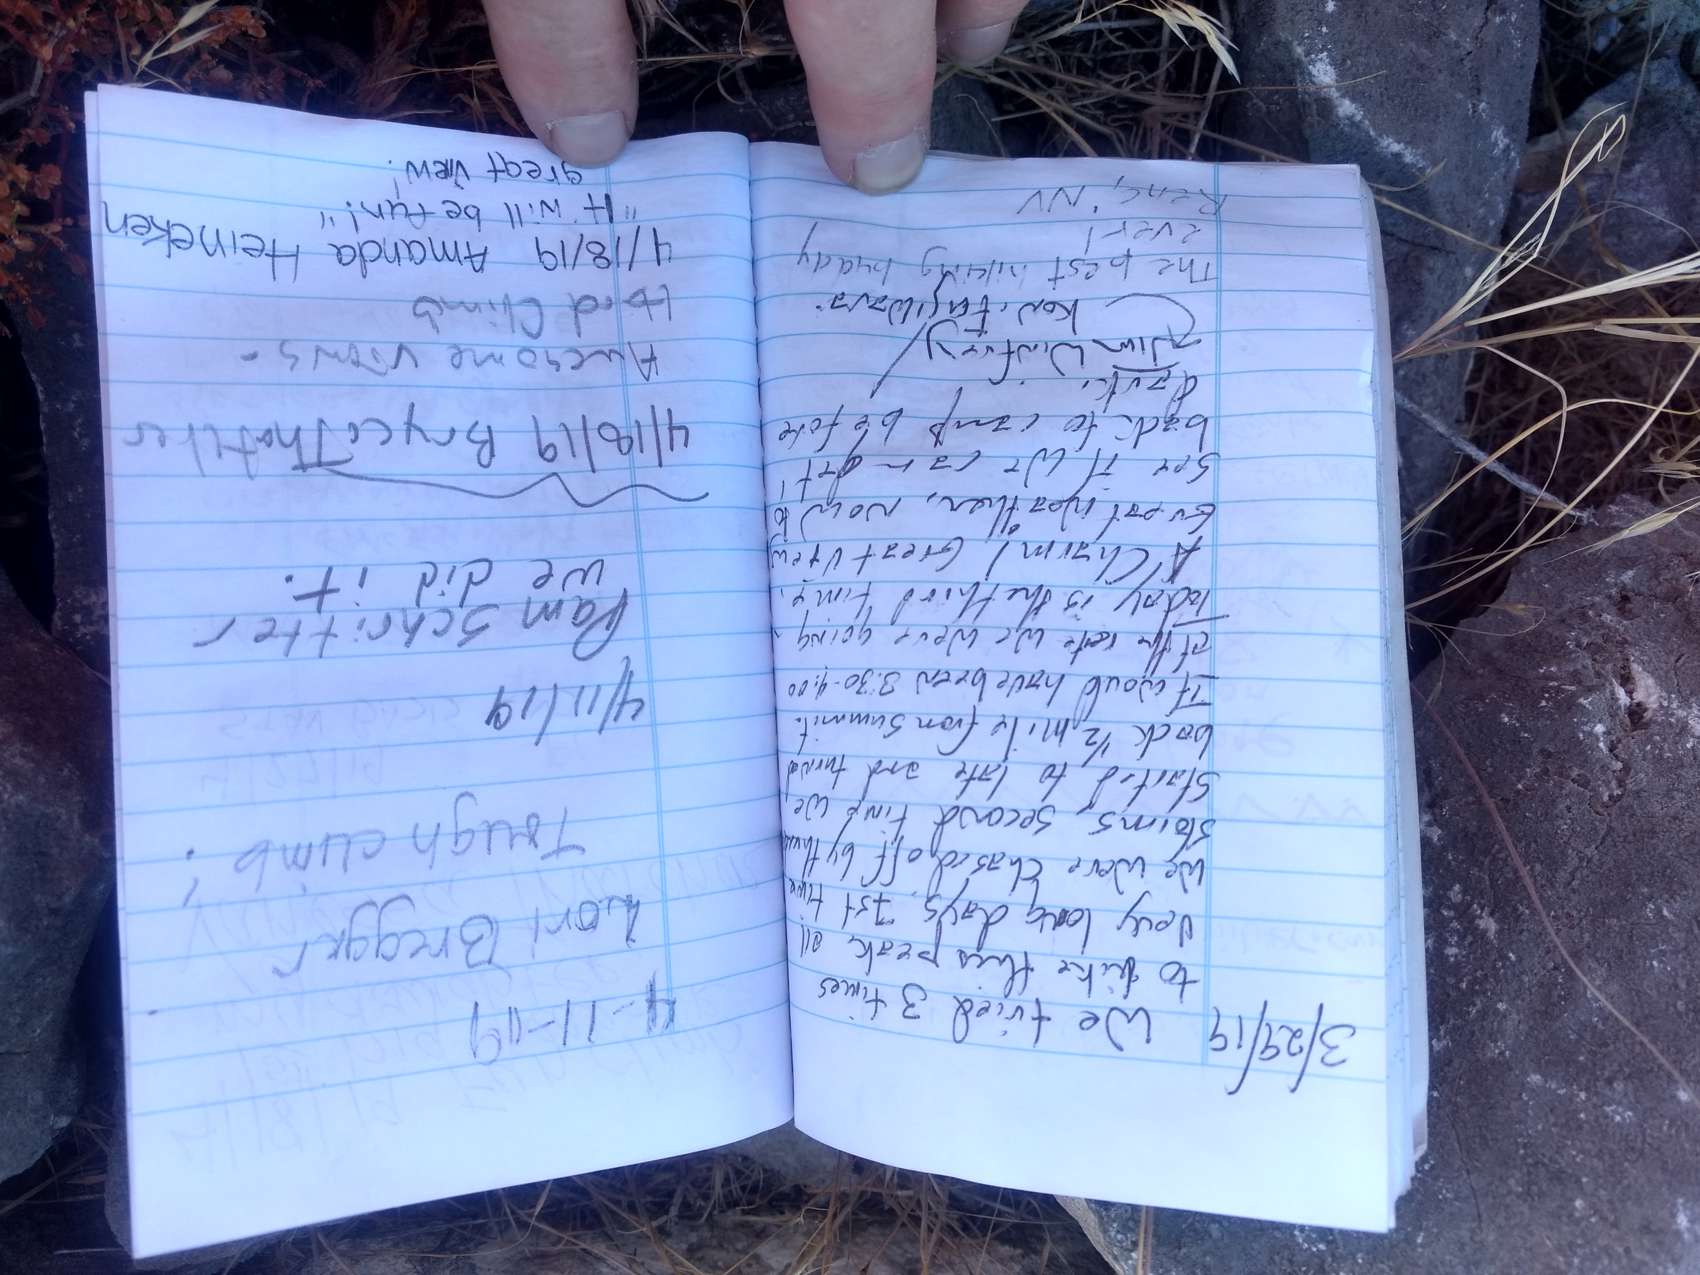 3/29/19 We tried 3 times
to hike this peak all
very long days. 1st time
we were chased off by thund
stoims, second time we
started to late and turnd
back 1/2 mile from summit.
It would have been 3:30-4:00
at the rate we were going.
Today is the third time.
A Charm! Great view
Great weather, now to
see if we can get
back to camp before
dark.
Jim Winfrey
Ken Fujiwara
The best hiking buddy
ever!
Reno, NV
4-11-19
Lori Bregger
Tough climb!
4/11/19
Pam Schritter
we did it.
4/18/19 Bryce Thatcher
Awesome views -
Hard Climb
4/18/19 Amanda Heineken
"It will be fun!"
great view!